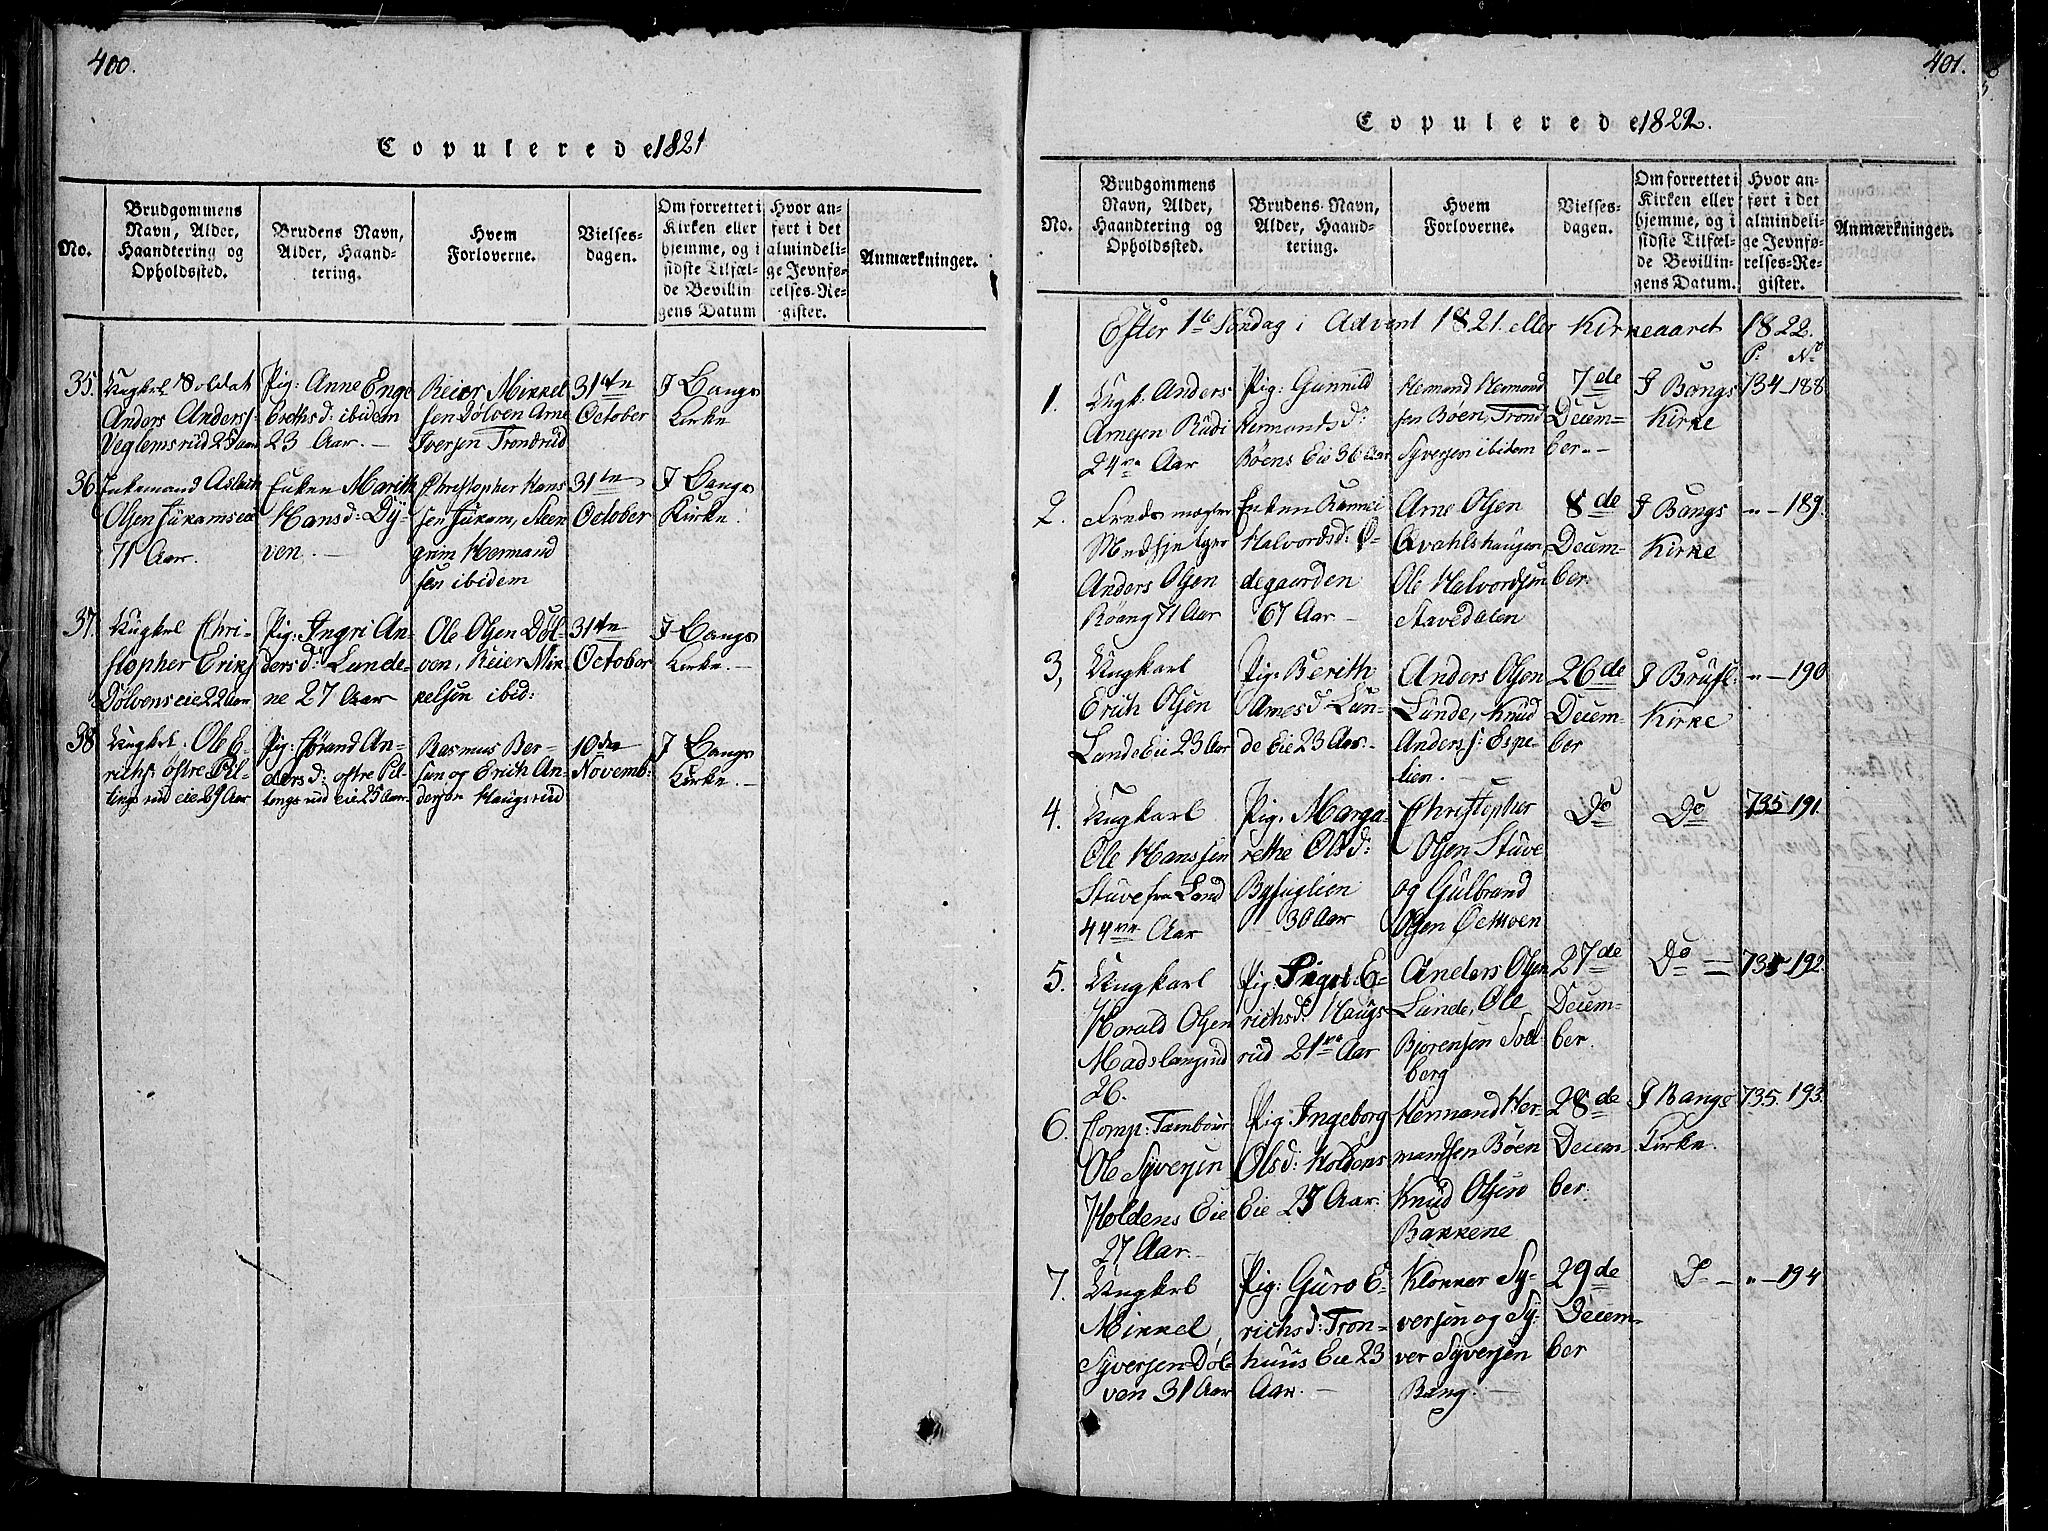 400.
Copulerede 1821
No.
Brudgommens
Navn, Alder,
Haandtering og
Opholdssted.
Brudens Navn,
Alder, Haand-
tering.
Hvem
Forloverne.
Vielses-
dagen.
Om forrettet i
Kirken eller
hjemme, og i
sidste Tilfæl-
de Bevillin
gens Datum
Hvor an-
ført i det
almindeli-
ge Jevnfø-
relses-Re-
gister.
Anmærkninger.
35.
Ungkrl Soldat
Anders Andersf:
Veglemsrud 25 aar
Pig: Anne Enge
brethsd: ibidem
23 Aar. —
Reier Mikkel
sen Dølven Arne
Iversen Trondrud
31te
October
I Bangs
Kirke
36.
Enkemand Aslach
Olsen Juram
71 Aar.
Enken Marith
Hansd: Dy-
ven. —
Christopher Hans
sen Juram, Steen
grim Hermand
sen ibidem
31te
October
I Bangs
Kirke.
37.
Ungkrl Chri-
stopher Eriks
Dølvens eie 22 Aar
Pig: Ingri An-
dersd: Lunde-
ne 27 Aar
Ole Olsen Døl-
ven, Reier Mik-
kelsen ibid:
31te
October
I Bangs
Kirke. —
38
Ungkrl. Ole E-
richs: østre Pil-
tings rud eie 29 Aar
Pig: Jørand An-
dersd: østre Pil-
tings rud eie 25 Aar.
Rasmus Ber-
sen og Erich An-
dersen Haugsrud
10de
Novemb:
I Bangs
Kirke. —
401.
Copulerede 1822.
No.
Brudgommens
Navn, Alder,
Haandtering og
Opholdssted.
Brudens Navn,
Alder, Haand-
tering.
Hvem
Forloverne.
Vielses-
dagen.
Om forrettet i
Kirken eller
hjemme, og i
sidste Tilfæl-
de Bevillin-
gens Datum.
Hvor an-
ført i det
almindeli-
ge Jevnfø-
relses-Re-
gister.
Anmærkninger.
Efter 1te Søndag i Advent 1821. eller Kirkeaaret 1822.
P: No
1.
Ungk. Anders
Arnesen Rudi
24 Aar
Pig: Gunnild
Hermandsd:
Bøens Eie 36 Aar
Hermand Hermand
sen Boen, Trond
Syversen ibidem
7de
Decem-
ber. -
I Bangs
Kirke
734-188
2.
Fredsmægler
Medhjelper
Anders Olsen
Røang 71 Aar
Enken Rannei
Halvordsd: Ø-
degaarden
67 Aar —
Arne Olsen
Qvahlshaugen,
Ole Halvordsen
Stavedalen
8de
Decem-
ber.
I Bangs
Kirke
" — 189.
3,
Ungkarl
Erich Olsen
Lunde Eie 23 Aar
Pig: Berith
Arnesd Lun-
de Eie 23 Aar. -
Anders Olsen
Lunde, Knud
Andersf: Espe-
lien. —
26de
Decem-
ber
I Brufl.
Kirke
" — 190
4.
Ungkarl
Ole Hanssen
Stuve fra Land
44 Aar
Pig: Marga-
rethe Olsd:
Byfuglien
30 Aar
Christopher
Olsen Stuve
og Gulbrand
Olsen
Do
Do
735-191.
5.
Ungkarl
Harald Olsen
Madslangrud
26.
Pig: Sigri E-
richsd: Haugs
rud 21 Aar
Anders Olsen
Lunde, Ole
Bjørensen Sol-
berg
27de
Decem-
ber.
Do —
735-192.
6.
Comp: Tambour
Ole Syversen
Holdens Eie
27 Aar. —
Pig: Ingeborg
Olsd: Holdens
Eie 25 Aar.
Hermand Her-
mandsen Bøen
Knud Olsen
Bakkene
28de
Decem-
ber.
I Bangs
Kirke.
735. 193.
7.
Ungkrl
Mikkel
Syversen Døl-
ven 31 Aar
Pig: Guro E-
richsd: Tron-
huus Eie 23
Aar. —
Klokker Sy-
versen og Sy-
ver Syversen
Bang. —
29de
Decem-
ber
D— —
" — 194